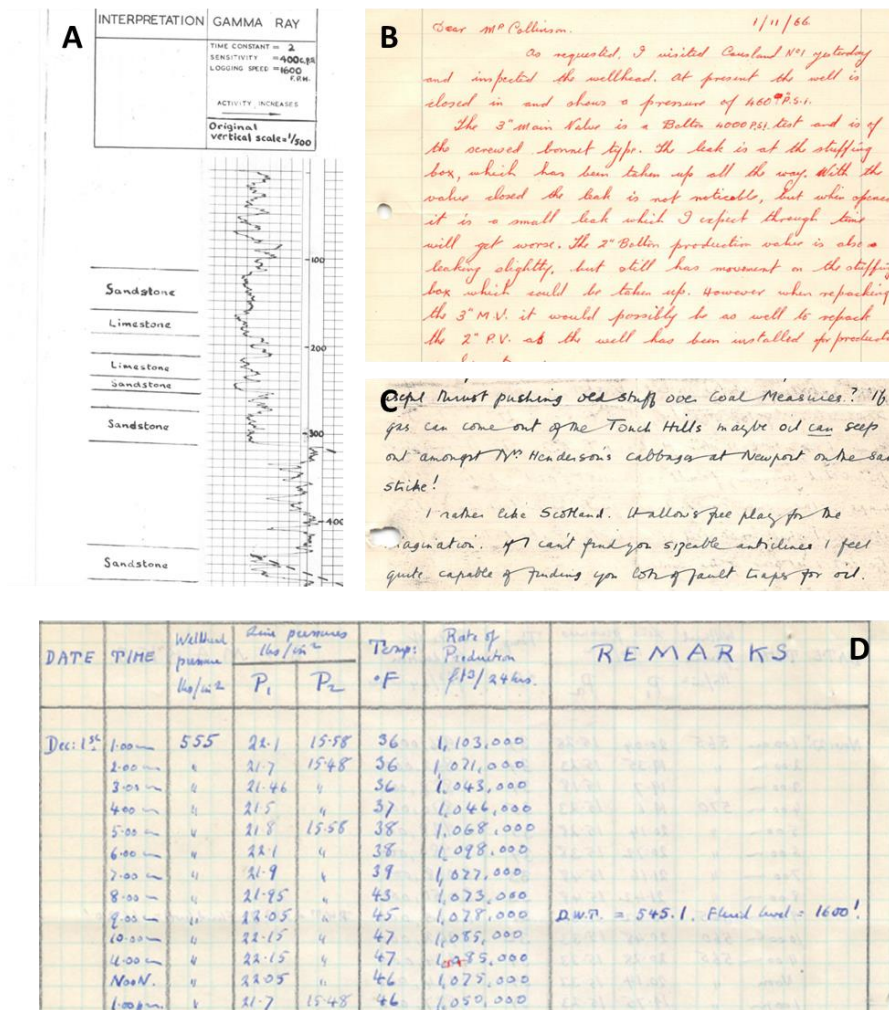 A
INTERPRETATION
GAMMA RAY
TIME CONSTANT = 2
SENSITIVITY =400c.p.s
LOGGING SPEED =1600
F.P.H.
ACTIVITY INCREASES
Original
vertical scale=1/500
100
Sandstone
Limestone
200
Limestone
Sandstone
Sandstone
300
400
Sandstone
B
Dear Mr Collinson.
1/11/66
As requested, I visited Cousland No1 yesterday
and inspected the wellhead. At present the well is
closed in and shows a pressure of 460 P.S.I.
The 3" Main Valve is a Bolton 4000 P.S.I. test and is of
the screwed bonnet type. The leak is at the stuffing
box, which has been taken up all the way. With the
valve closed the leak is not noticable, but when opened
it is a small leak which I expect through time
will get worse. The 2" Bolton production valve is also
leaking slightly, but still has movement on the stuffing
box which could be taken up. However when repacking
the 3" M.V. it would possibly be as well to repack
the 2" P.V. as the well has been installed for
C
thrust pushing old stuff over Coal Measures? If
gas can come out of the Touch Hills maybe oil can seep
out amongst Mrs Henderson's cabbages at Newport on the
strike!
I rather like Scotland. It allows free play for the
imagination. If I can't find you sizeable anticlines I feel
quite capable of finding you lots of fault traps for oil.
D
DATE TIME Wellhead pressure lbs/in2 Line pressures lbs/in2 P1 P2 Temp: °F Rate of Production ft3/24hrs. REMARKS
Dec: 1st 1.00am 555 22.1 15.58 36 1,103,000
2.00 " 21.7 15.48 36 1,071,000
3.00 " 21.46 " 36 1,043,000
4.00 " 21.5 " 37 1,046,000
5.00 " 21.8 15.58 38 1,068,000
6.00 " 22.1 " 38 1,098,000
7.00 " 21.9 " 39 1,077,000
8.00 " 21.95 " 43 1,073,000
9.00 " 22.05 " 45 1,078,000 D.W.T. = 545.1. Fluid level = 1600'.
10.00 " 22.15 " 47 1,085,000
11.00 " 22.15 " 47 1,085,000
NOON. " 22.05 " 46 1,075,000
1.00pm. " 21.7 15.48 46 1,050,000